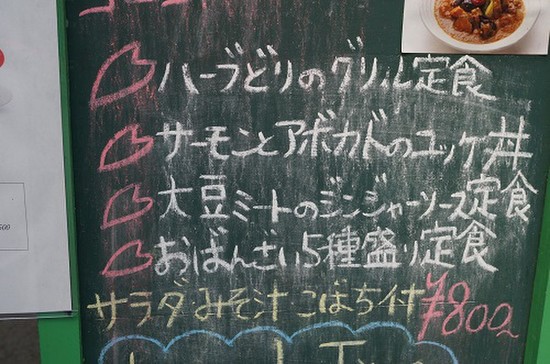 ハーブどりのグリル定食
サーモンとアボカドのユッケ丼
大豆ミートのジンジャーソース定食
おばんざい5種盛り定食
サラダ みそ汁 こばち付 ¥800